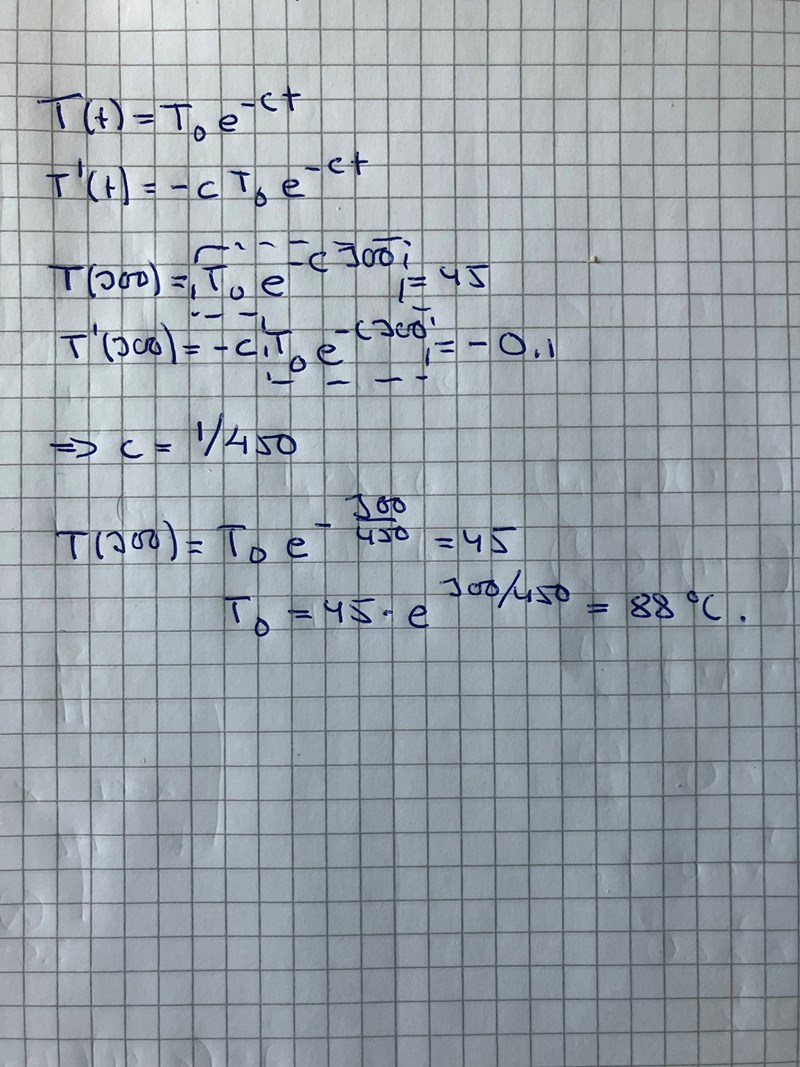 T(t) = T₀ e^{-ct}
T'(t) = -c T₀ e^{-ct}
T(300) = T₀ e^{-c 300} = 45
T'(300) = -c T₀ e^{-c 300} = -0.1
⇒ c = 1/450
T(300) = T₀ e^{-300/450} = 45
T₀ = 45 · e^{300/450} = 88 °C.